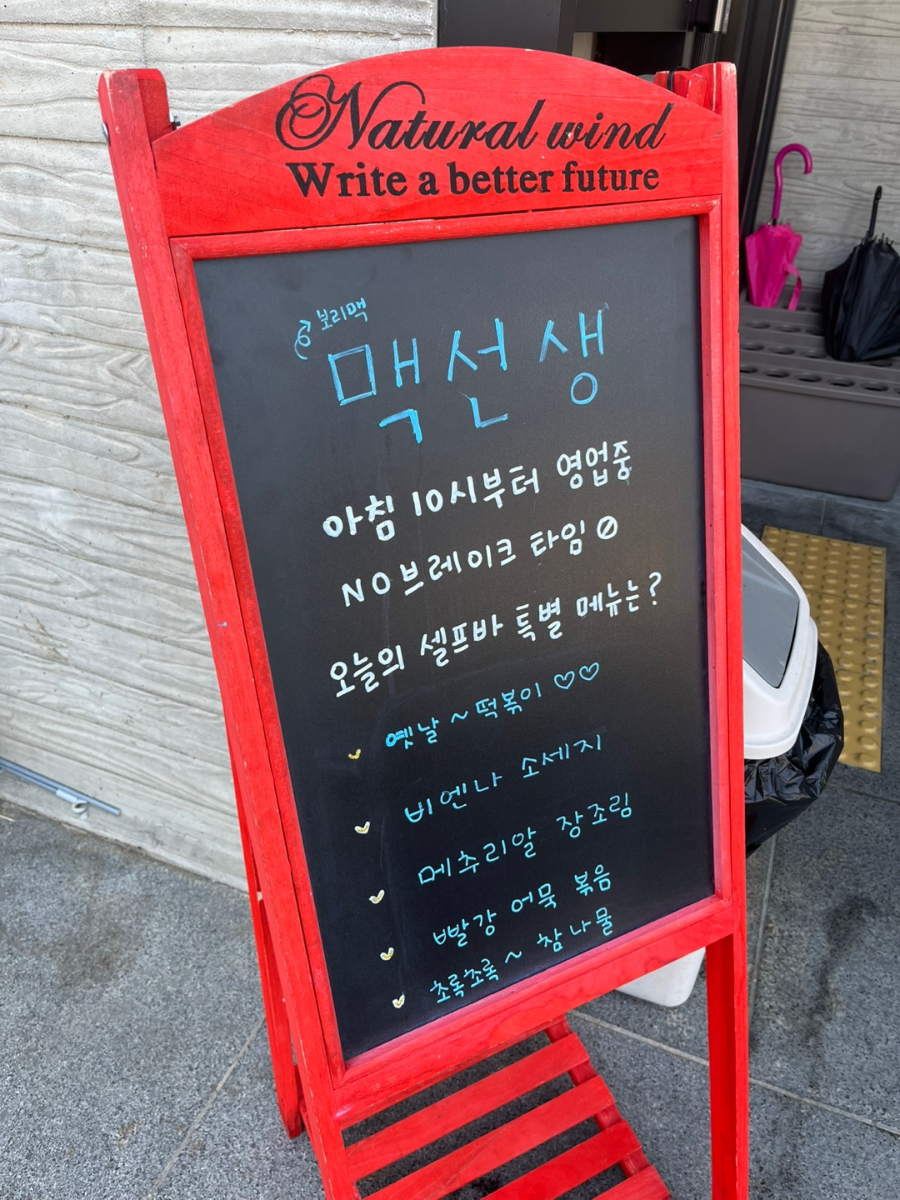 Natural wind
Write a better future
보리맥
맥선생
아침 10시부터 영업중
NO 브레이크 타임
오늘의 셀프바 특별 메뉴는?
옛날 ~ 떡볶이 ♡♡
비엔나 소세지
메추리알 장조림
빨강 어묵 볶음
초록초록 ~ 참나물